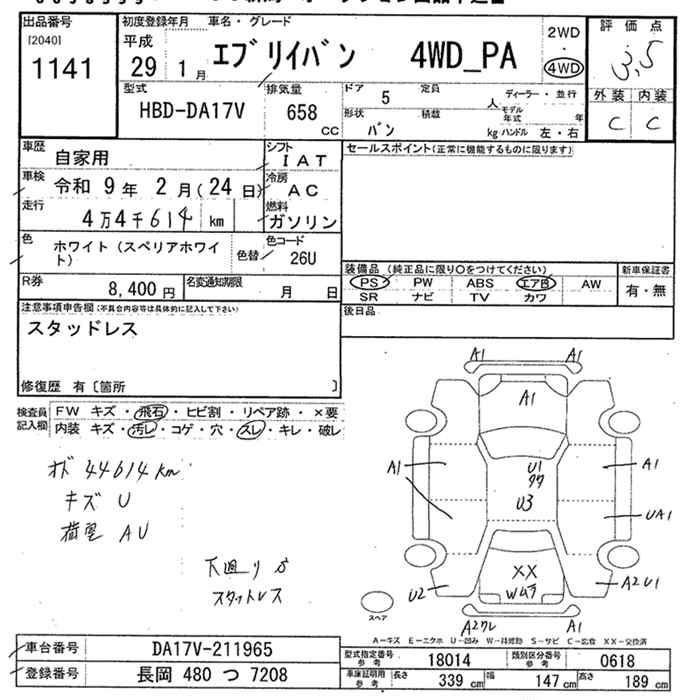 出品番号
[2040]
1141
初度登録年月
平成
29 1月
車名・グレード
エブリイバン 4WD_PA
2WD
・
4WD
評価点
3.5
外装 内装
C C
型式
HBD-DA17V
排気量
658
CC
ドア 5
定員
人
ディーラー・並行
モデル年式 年
形状
バン
積載
kg
ハンドル 左・右
車歴
自家用
シフト
IAT
車検
令和 9年 2月(24日)
冷房
AC
走行
4万4千614 km
燃料
ガソリン
色
ホワイト(スペリアホワイト)
色替
色コード
26U
R券
8,400円
名変通知期限
月 日
セールスポイント(正常に機能するものに限ります)
装備品(純正品に限り〇をつけてください)
PS PW ABS エアB AW
SR ナビ TV カワ
新車保証書
有・無
後日品
注意事項申告欄(不具合内容等は具体的に記入して下さい)
スタッドレス
修復歴 有〔箇所 〕
検査員記入欄
FW キズ・飛石・ヒビ割・リペア跡・×要
内装 キズ・汚レ・コゲ・穴・スレ・キレ・破レ
44614km
キズ U
荷室 AU
下廻りサ
スタットレス
A1 A1
A1
A1 A1
U1
U3
UA1
XX
U2
A2U1
スペア
A1
A-キズ E-エクボ U-凹み W-補修跡 S-サビ C-腐食 XX-交換済
車台番号 DA17V-211965
登録番号 長岡 480 つ 7208
型式指定番号 参考 18014
類別区分番号 参考 0618
車庫証明用 参考 長さ 339cm 幅 147cm 高さ 189cm